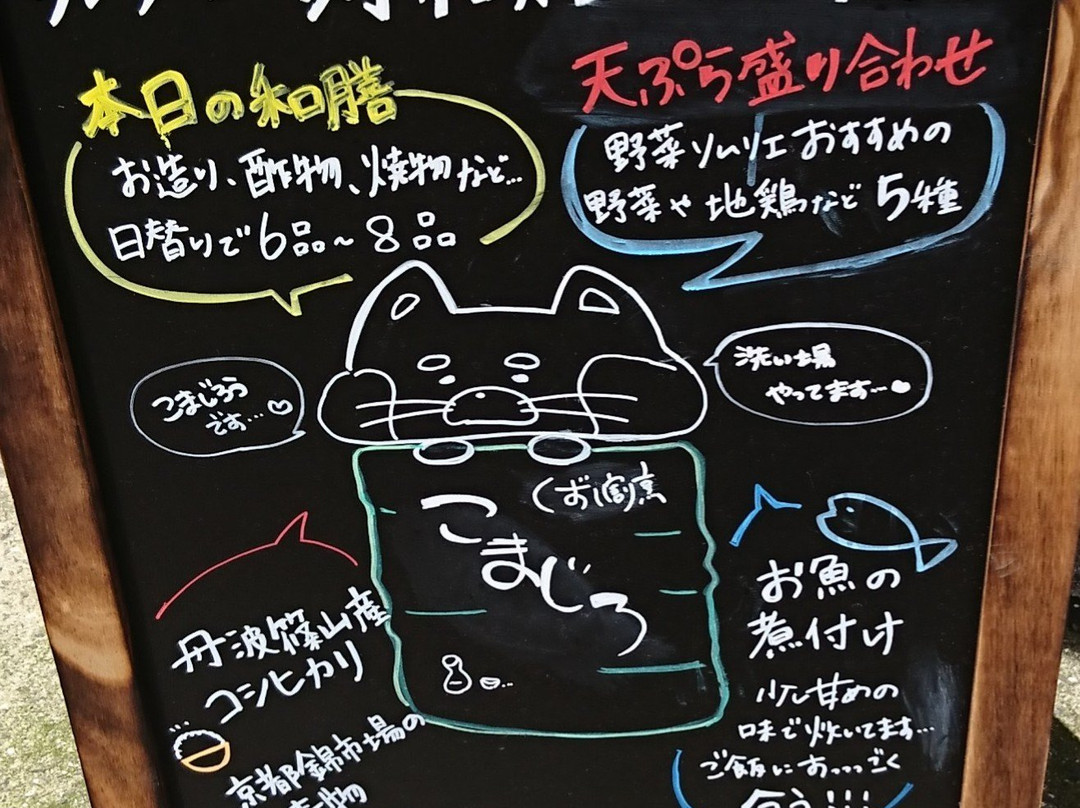 本日の和膳
お造り、酢物、焼物など…
日替りで6品～8品
天ぷら盛り合わせ
野菜ソムリエおすすめの
野菜や地鶏など5種
こまじろう
です…
洗い場
やってます…
くずし割烹
こまじろ
丹波篠山産
コシヒカリ
京都錦市場の
お魚の
煮付け
少し甘めの
味で炊いてます…
ご飯にすっっごく
合う!!!